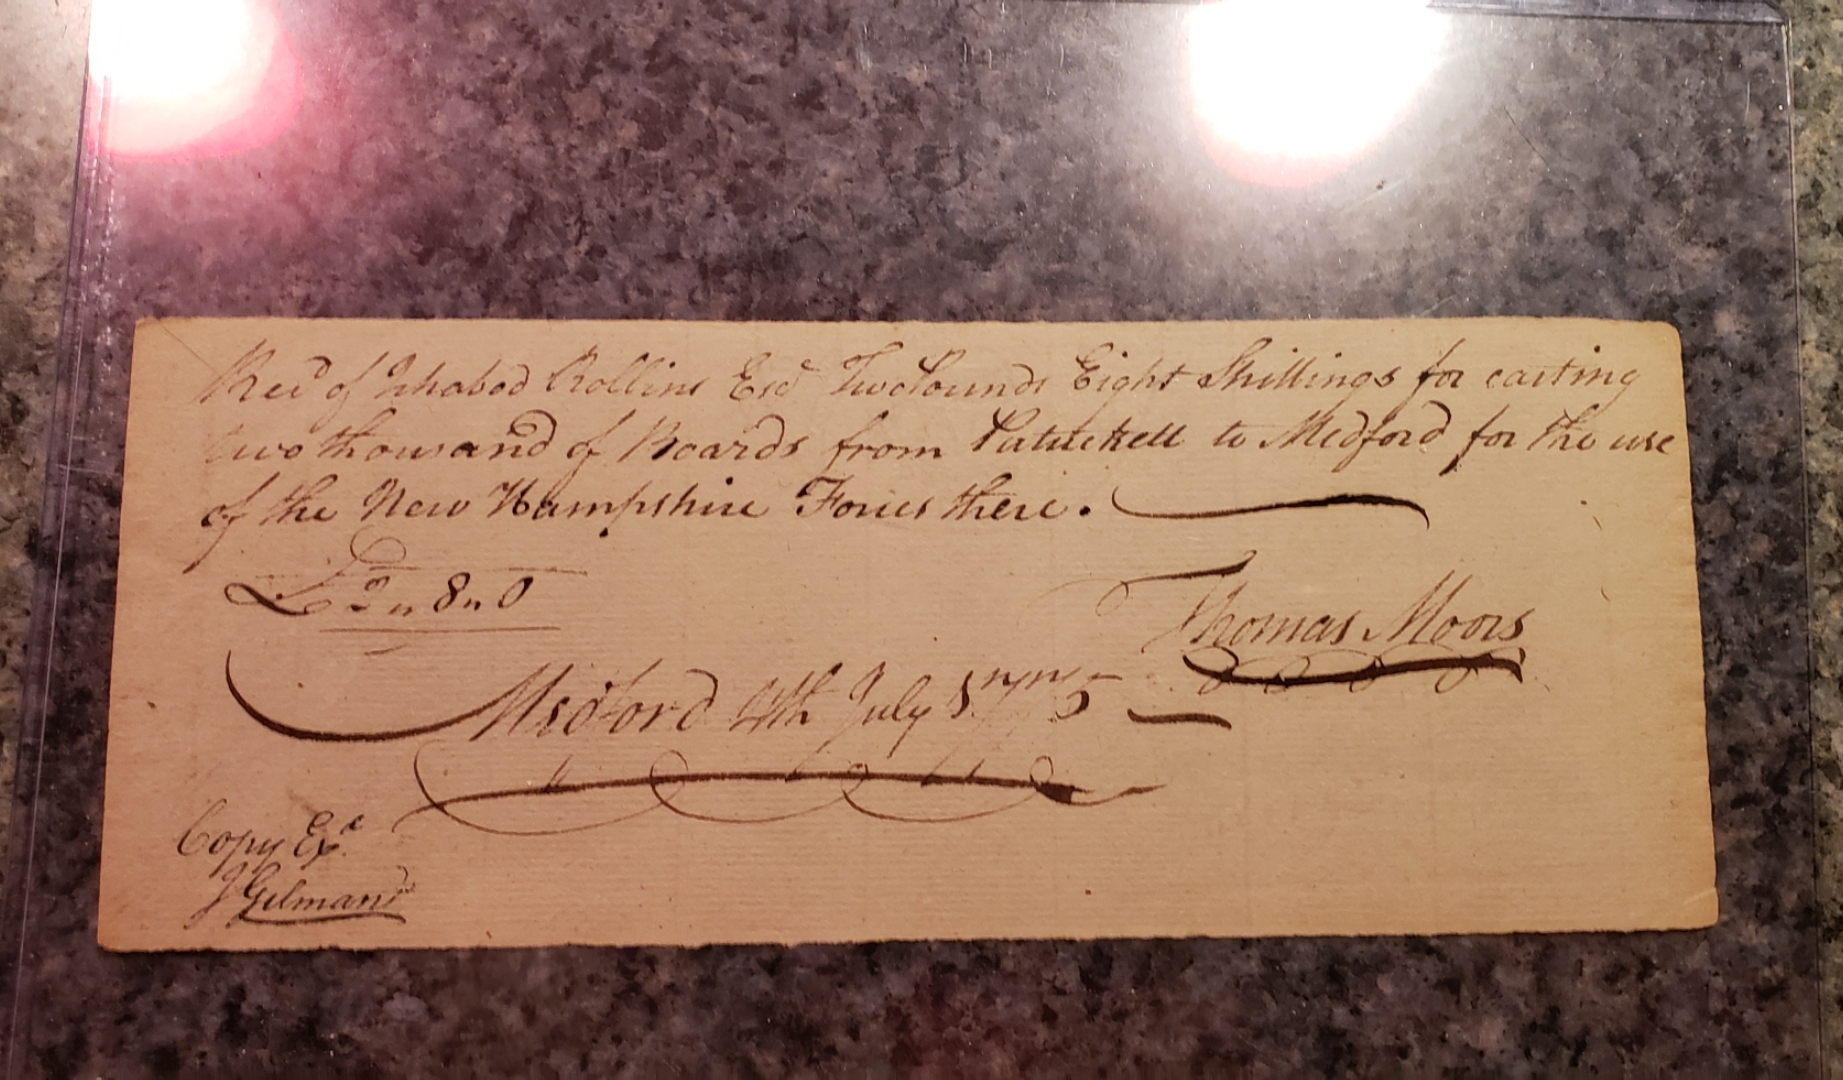 Rec'd of Ichabod Rollins Esq Two Pounds Eight Shillings for carting
two thousand of Boards from Patuckett to Medford for the use
of the New Hampshire Forces there.
£2 " 8 " 0
Thomas Moors
Medford 4th July 1775
Copy Exd
J Gilman